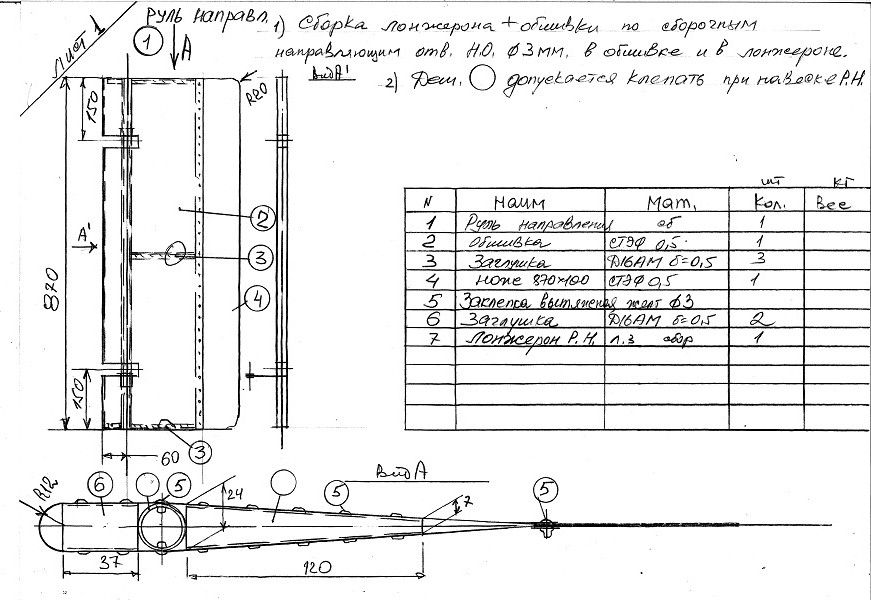 Лист 1
РУЛЬ Направл.
1
A
1) Сборка лонжерона + обшивки по сборочным
направляющим отв. Н.О. Ф3мм. в обшивке и в лонжероне.
Вид А'
2) Дет. допускается клепать при навеске Р.Н.
R20
150
2
A'
3
870
4
150
60
3
шт кг
N Наим Мат. Кол. Вес
1 Руль направления об 1
2 обшивка СТЭФ 0,5 1
3 Заглушка Д16АМ б=0,5 3
4 ноже 870х100 СТЭФ 0,5 1
5 Заклепка вытяжная жел Ф3
6 Заглушка Д16АМ б=0,5 2
7 Лонжерон Р.Н. л.3 сбор 1
Вид А
R12
6
5
24
5
7
5
37
120